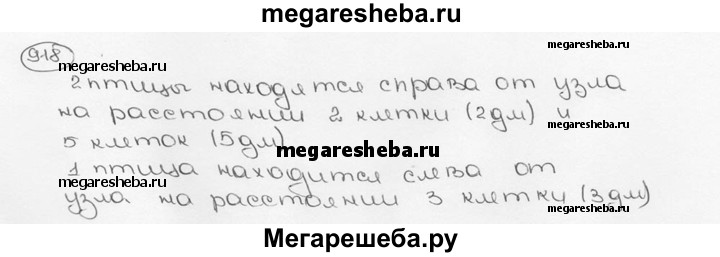 megaresheba.ru
918
megaresheba.ru
megaresheba.ru
2 птицы находятся справа от узла
на расстоянии 2 клетки (2дм) и
megaresheba.ru
5 клеток (5дм)
megaresheba.ru
1 птица находится слева от
megaresheba.ru
узла на расстоянии 3 клетки (3дм)
megaresheba.ru
Мегарешеба.ру